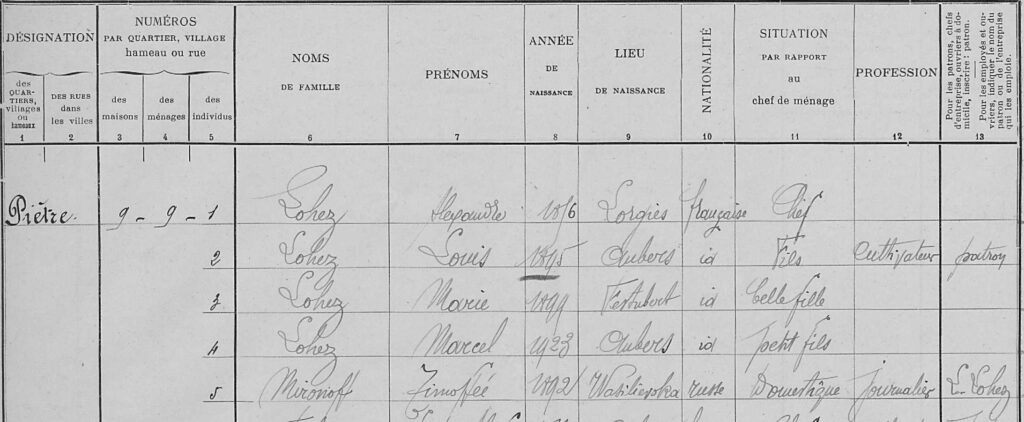 DÉSIGNATION NUMÉROS PAR QUARTIER, VILLAGE hameau ou rue NOMS DE FAMILLE PRÉNOMS ANNÉE DE NAISSANCE LIEU DE NAISSANCE NATIONALITÉ SITUATION PAR RAPPORT au chef de ménage PROFESSION Pour les patrons, chefs d'entreprise, ouvriers à domicile, inscrire : patron. Pour les employés et ouvriers, indiquer le nom du patron ou de l'entreprise qui les emploie.
des QUARTIERS, villages ou hameaux DES RUES dans les villes des maisons des ménages des individus
1 2 3 4 5 6 7 8 9 10 11 12 13
Piètre. 9 - 9 - 1 Lohez Alexandre 1856 Lorgies française Chef
2 Lohez Louis 1895 Aubers id Fils Cultivateur patron
3 Lohez Marie 1899 Festubert id belle fille
4 Lohez Marcel 1923 Aubers id petit fils
5 Mironoff Timofféé 1892 Wasilievska russe Domestique journalier L. Lohez